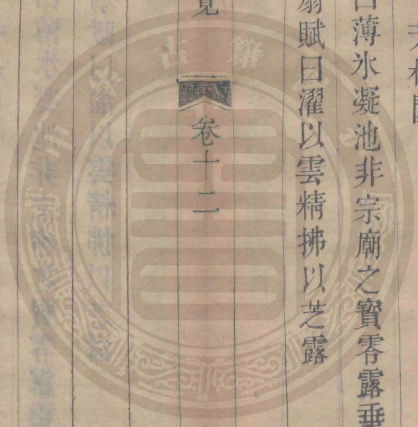 曰薄氷凝池非宗廟之寶零露垂
扇賦曰濯以雲精拂以芝露
卷十二